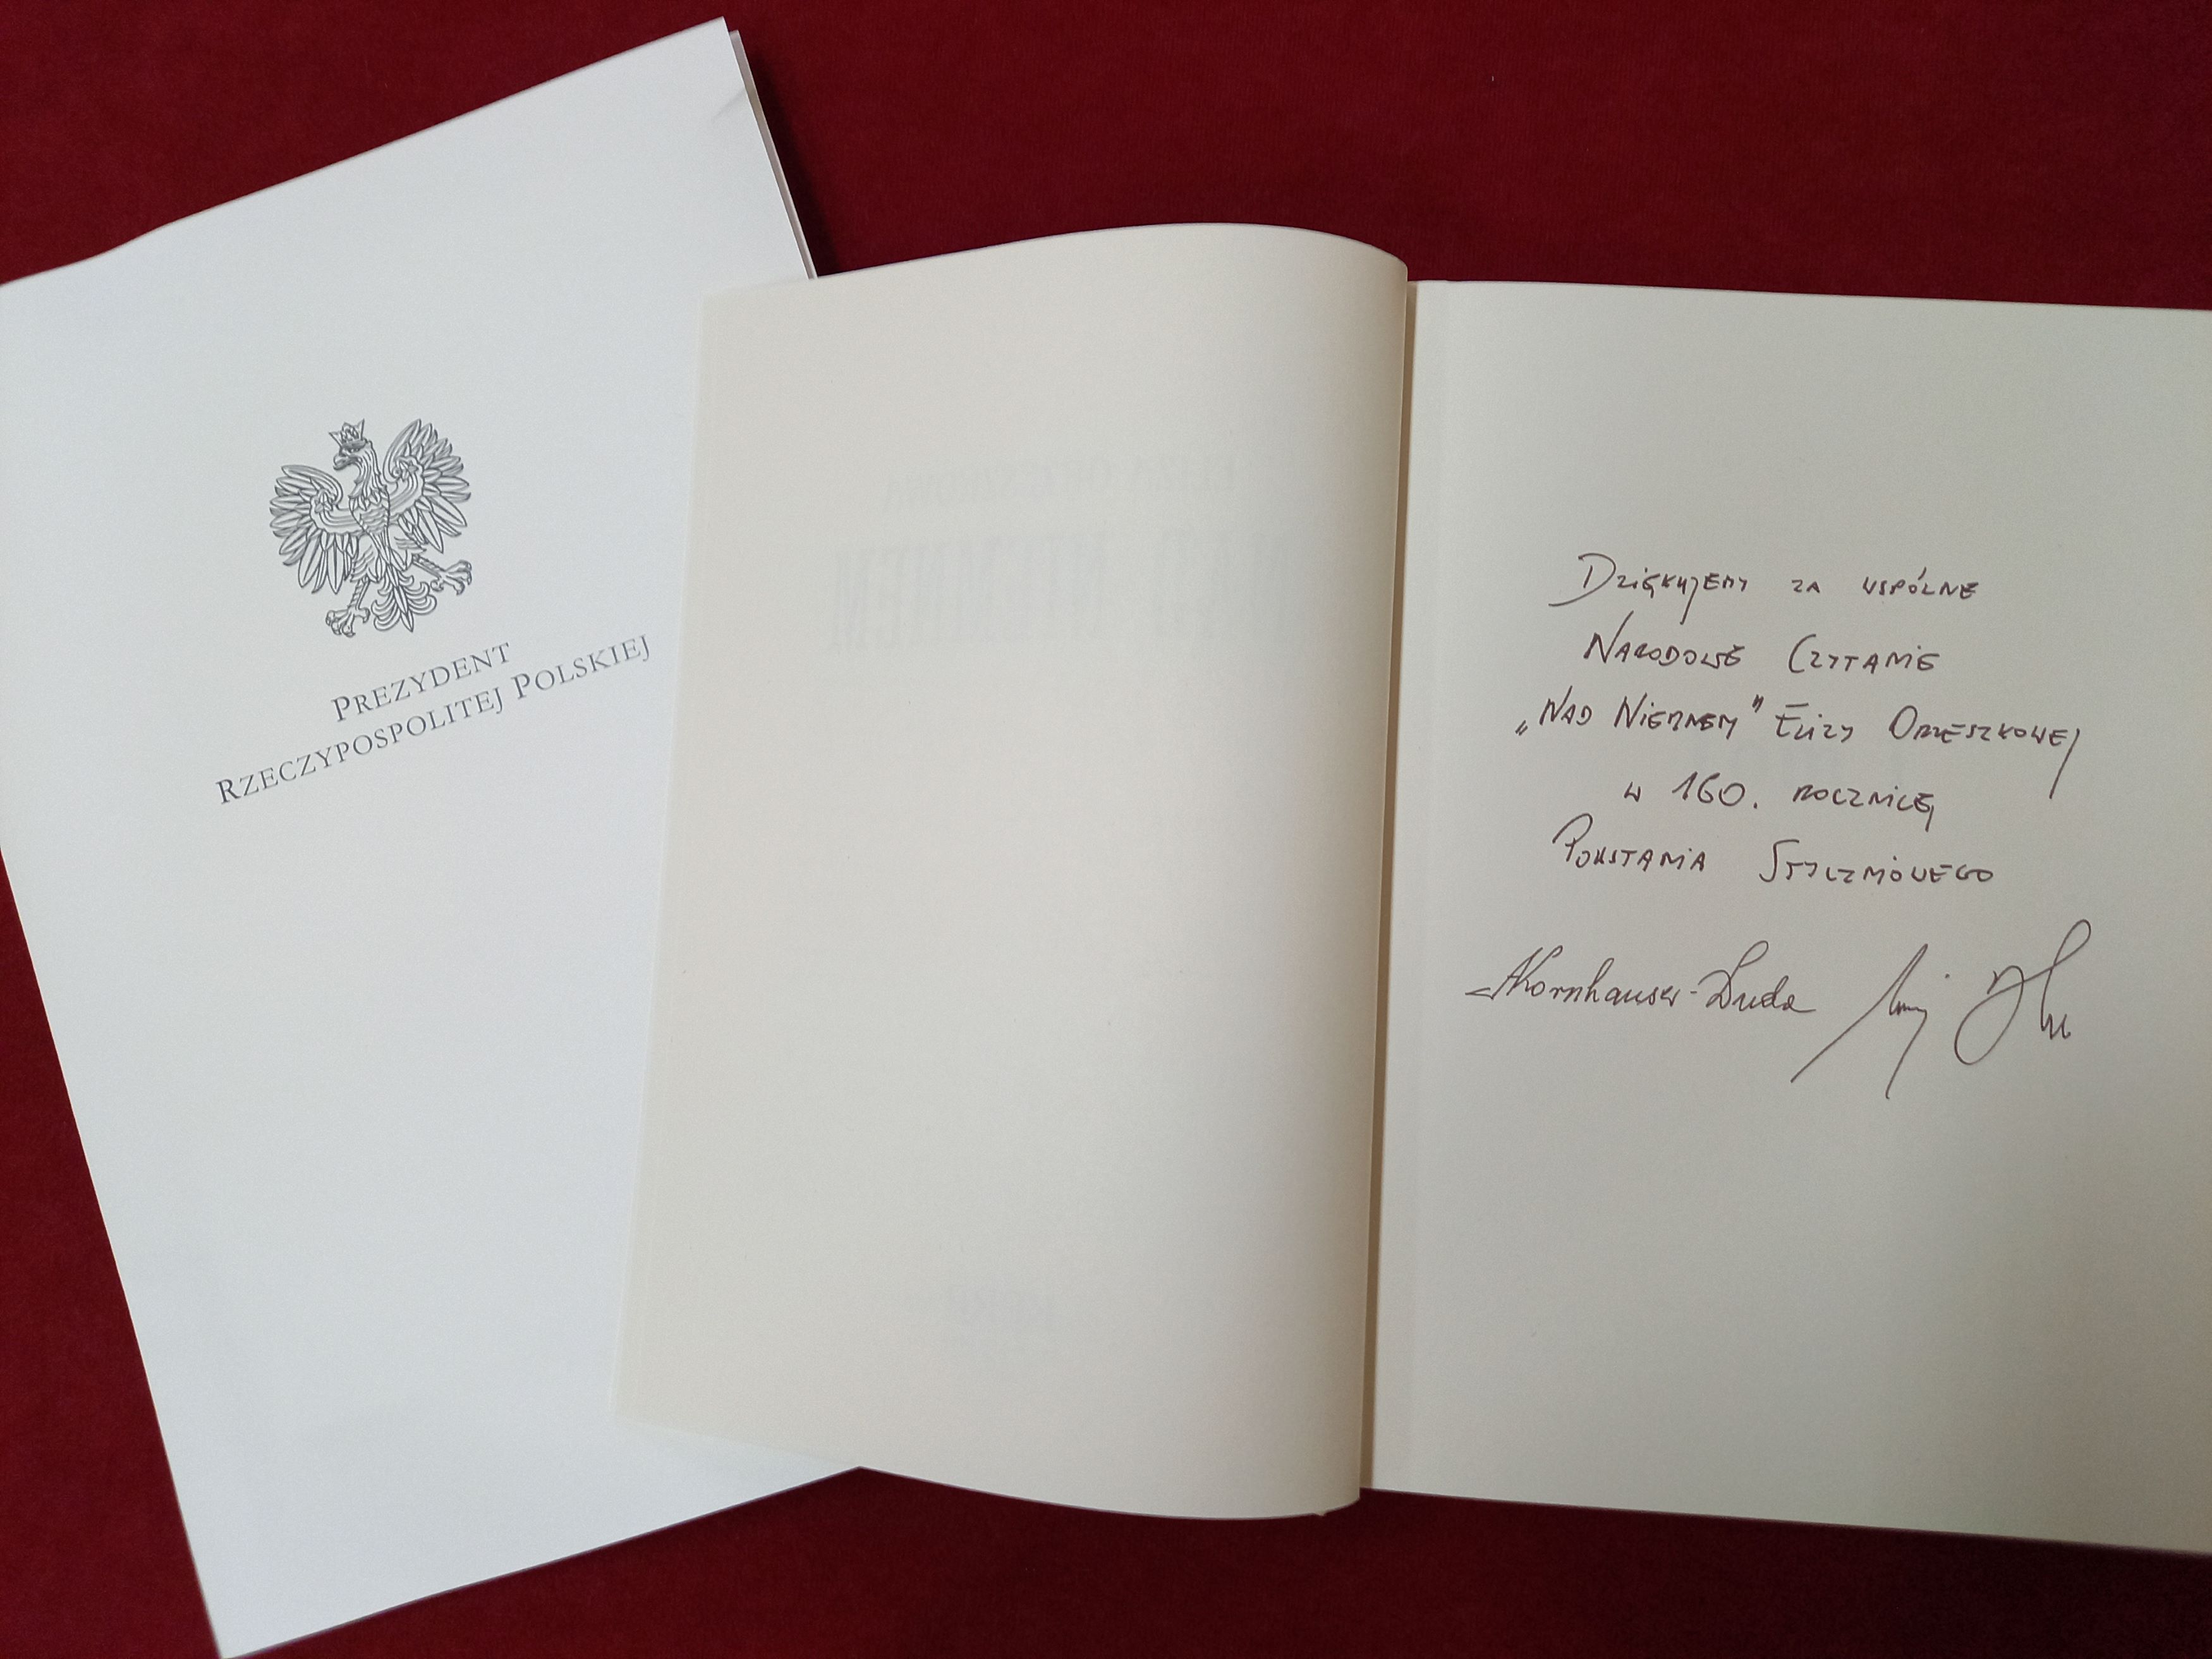 PREZYDENT
RZECZYPOSPOLITEJ POLSKIEJ
NAD NIEMNEM
Dziękujemy za wspólne
Narodowe Czytanie
„Nad Niemnem” Elizy Orzeszkowej
w 160. rocznicę
Powstania Styczniowego
AKornhauser-Duda